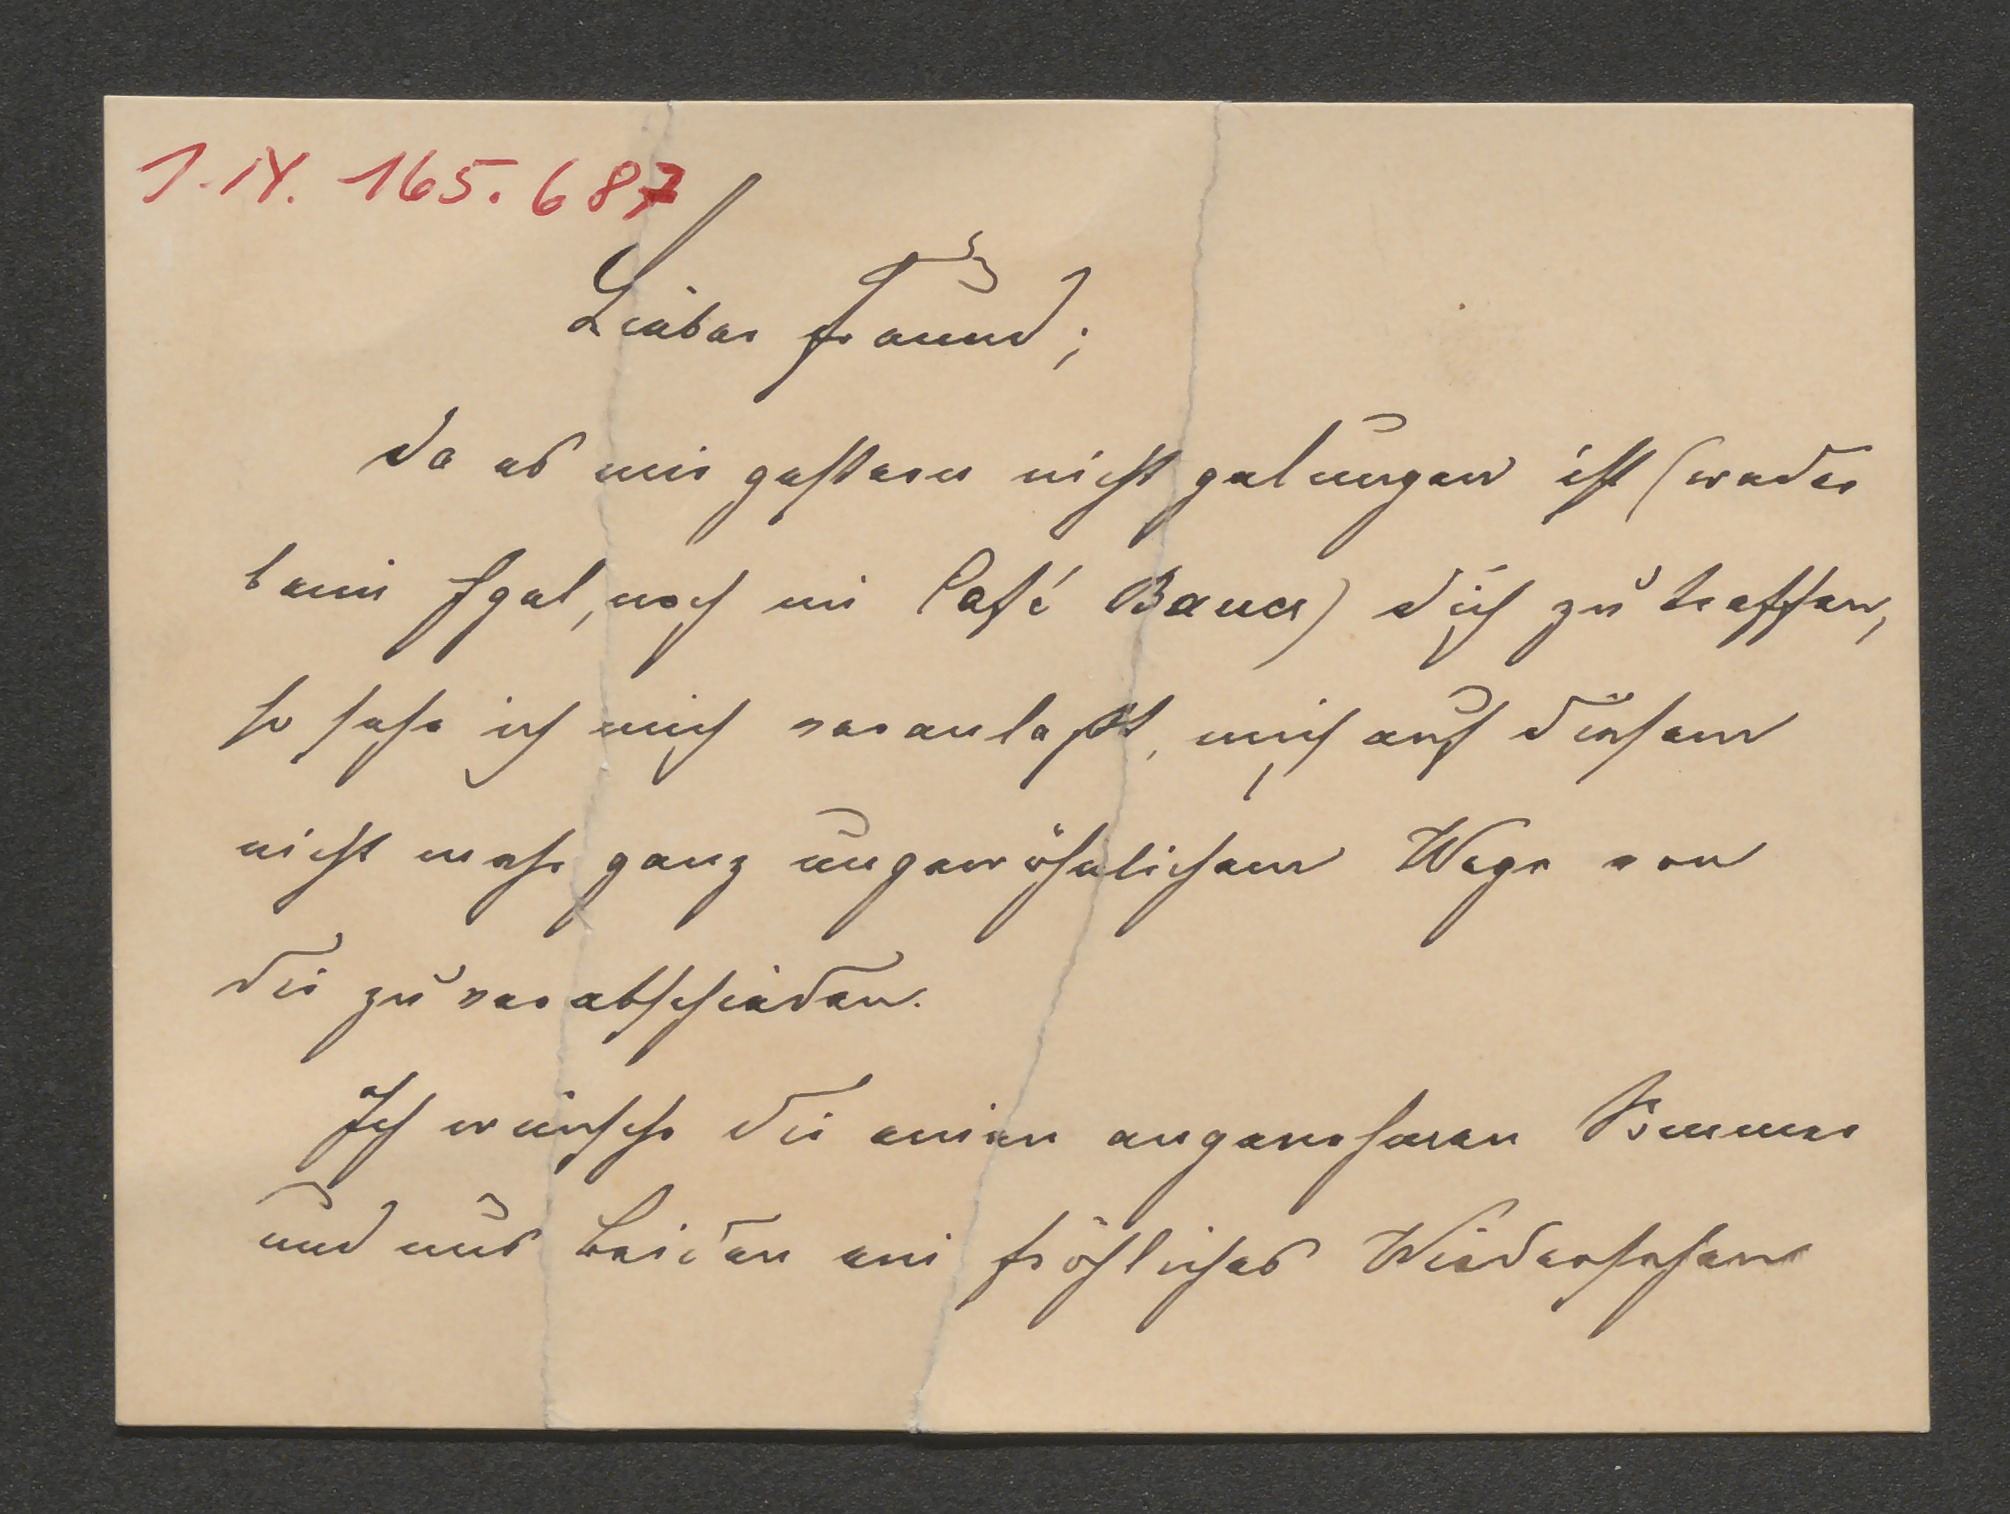 J.N. 165.687
Lieber Freund;
da es mir gestern nicht gelungen ist (weder
beim Igel, noch im Café Bauer) dich zu treffen,
so sehe ich mich veranlaßt, mich auf diesem
nicht mehr ganz ungewöhnlichem Wege von
dir zu verabschieden.
Ich wünsche dir einen angenehmen Sommer
und uns beiden ein fröhliches Wiedersehen